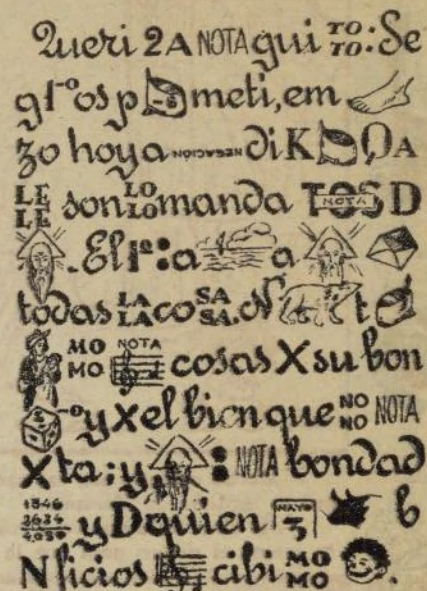 Queri 2A NOTA qui TO TO: Se
g1-o os p meti, em
zo hoy a NEGACIÓN di K A
LE LE son LO LO manda TOS NOTA D
. El 1º: a a
todas LA LA co SA SA. N t
MO MO NOTA cosas X su bon
-o y x el bien que NO NO NOTA
X ta; y, : NOTA bondad
y D quien MAYO 3 b
N ficios cibi MO MO .